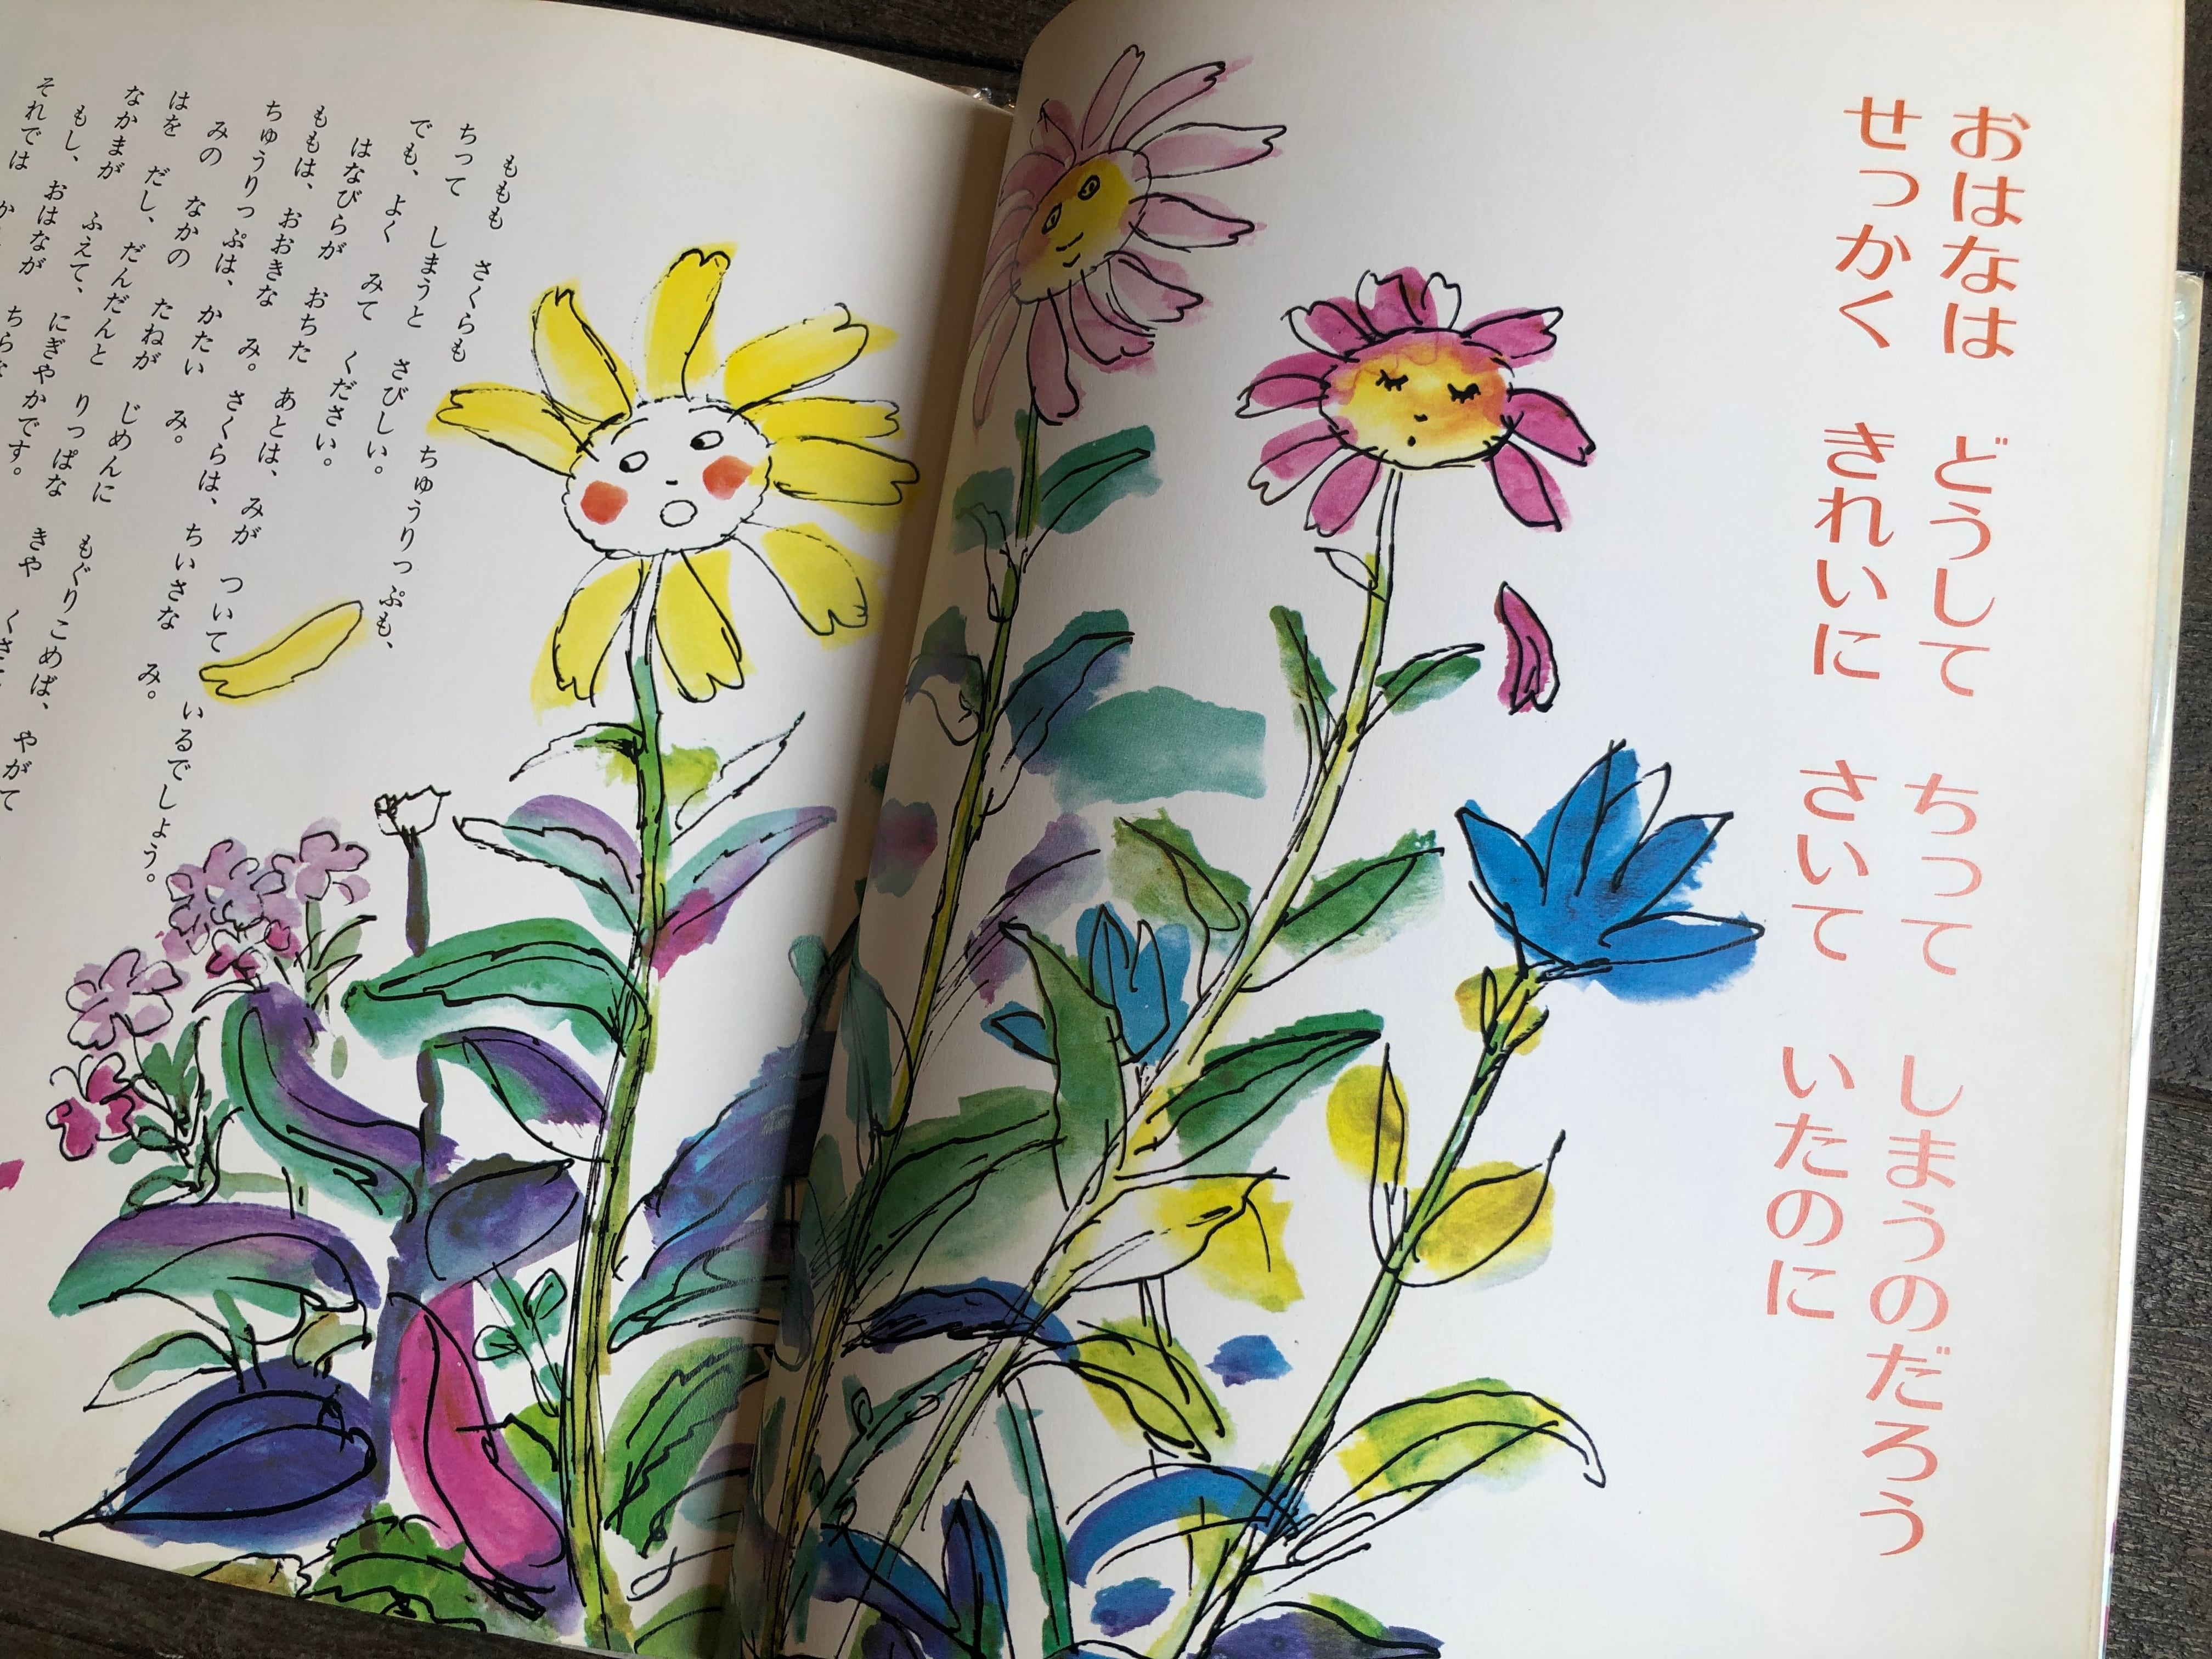 おはなは どうして ちって しまうのだろう
せっかく きれいに さいて いたのに
ももも さくらも ちゅうりっぷも、
ちって しまうと さびしい。
でも、 よく みて ください。
はなびらが おちた あとは、 みが ついて いるでしょう。
ももは、 おおきな み。 さくらは、 ちいさな み。
ちゅうりっぷは、 かたい み。
みの なかの たねが じめんに もぐりこめば、 やがて
はを だし、 だんだんと りっぱな きや
なかまが ふえて、 にぎやかです。
もし、 おはなが
それでは